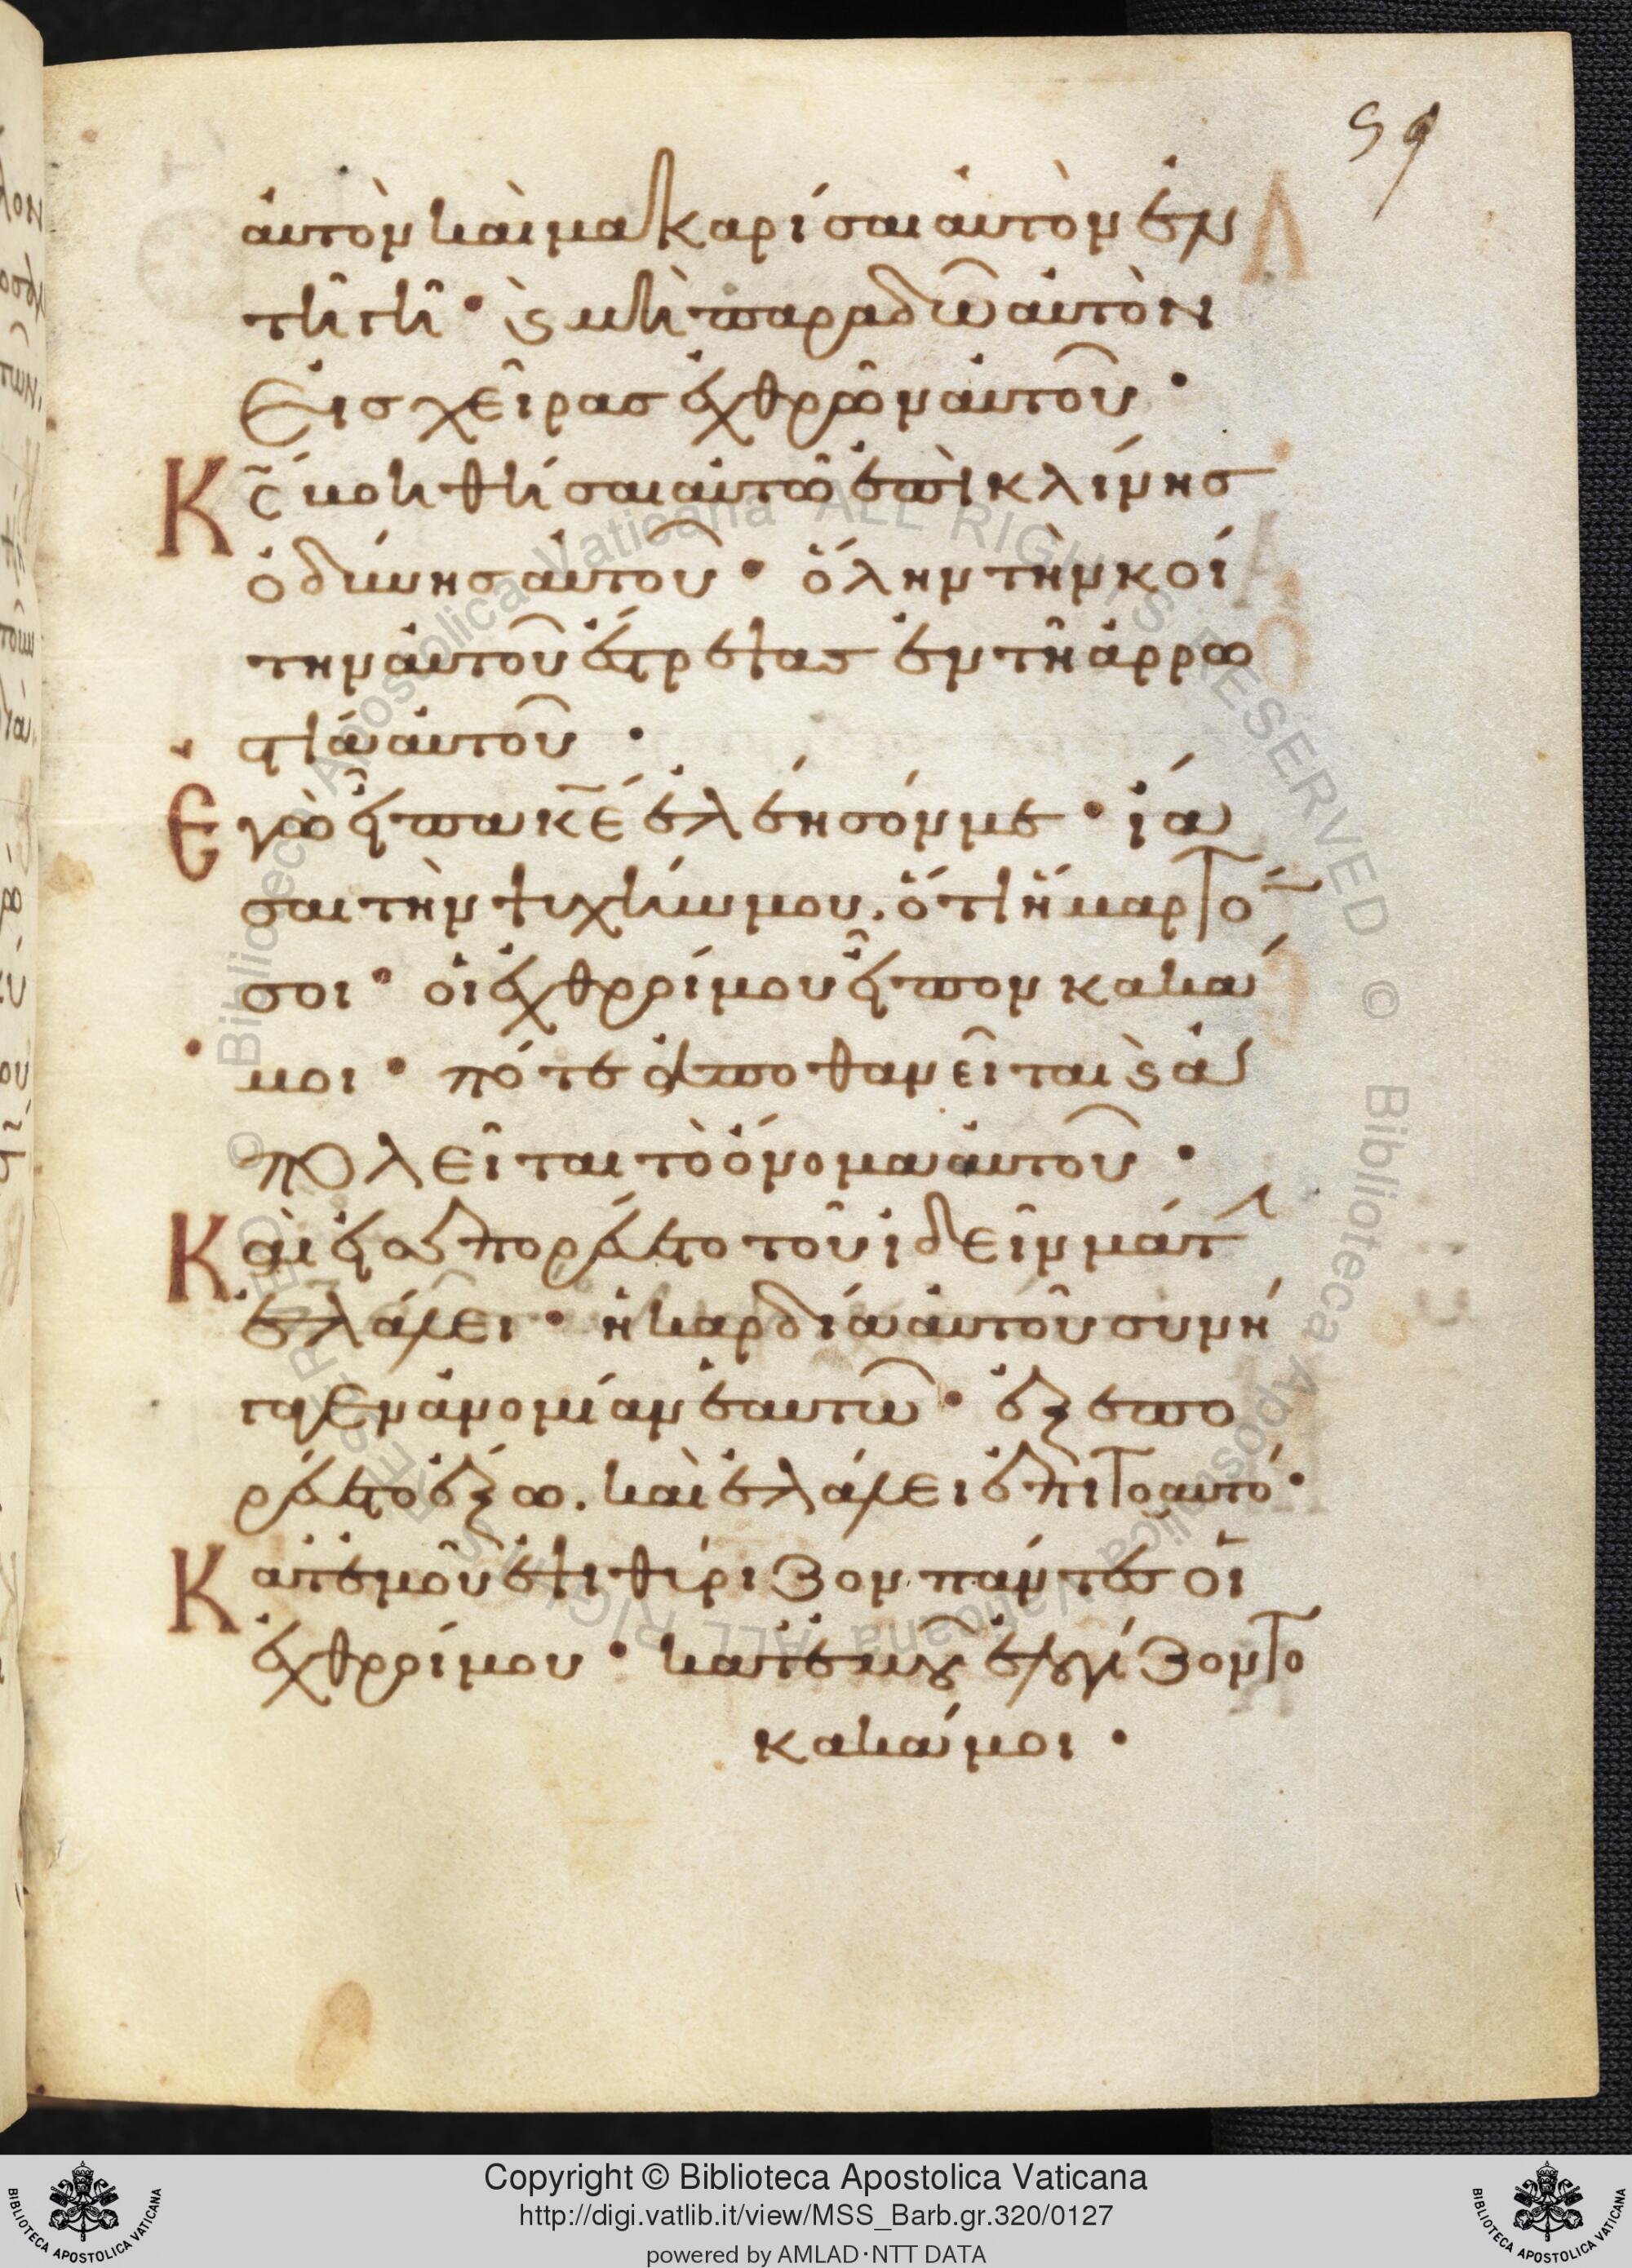 59
αὐτὸν καὶ μακαρίσαι αὐτὸν ἐν
τῆ γῆ · ϗ μὴ παραδῶ αὐτὸν
εἰς χεῖρας ἐχθρῶν αὐτοῦ ·
Κς̃ βοηθήσαι αὐτῶ ἐπὶ κλίνης
ὀδύνης αὐτοῦ · ὅλην τὴν κοί
την αὐτοῦ ἔστρεψας ἐν τῆ ἀρρω
στία αὐτοῦ ·
Ἐγὼ εἶπα κε̃ ἐλέησόν με · ἴα
σαι τὴν ψυχήν μου. ὅτι ἥμαρτόν
σοι · οἱ ἐχθροί μου εἶπον κακά
μοι · πότε ἀποθανεῖται ϗ ἀ
πολεῖται τὸ ὄνομα αὐτοῦ ·
Καὶ εἰσεπορεύετο τοῦ ἰδεῖν μάτ
ἐλάλει · ἡ καρδία αὐτοῦ συνή
γαγεν ἀνομίαν ἑαυτῶ · ἐξεπο
ρεύετο ἔξω. καὶ ἐλάλει ἐπιτοαυτό ·
Κατ' ἐμοῦ ἐψιθύριζον πάντες οἱ
ἐχθροί μου · κατ' ἐμοῦ ἐλογίζοντο
κακά μοι ·
Copyright © Biblioteca Apostolica Vaticana
http://digi.vatlib.it/view/MSS_Barb.gr.320/0127
powered by AMLAD·NTT DATA
BIBLIOTECA APOSTOLICA VATICANA
BIBLIOTECA APOSTOLICA VATICANA